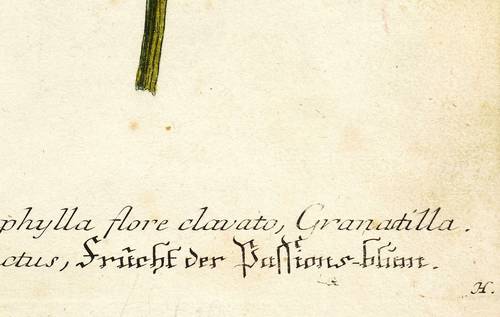 phylla flore clavato, Granatilla.
ctus, Frücht der Passions-blum.
H.